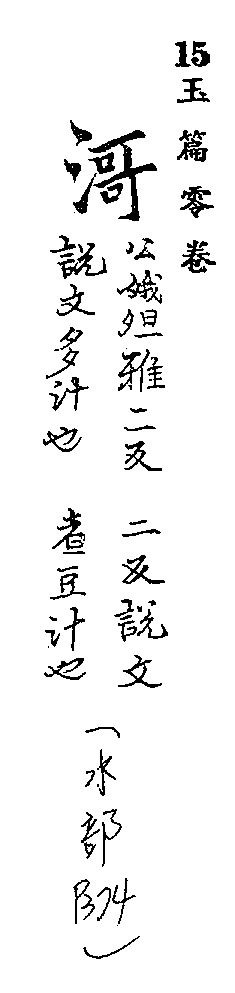 15玉篇零卷
滒
公娥雅二反
說文多汁也
二反說文
煮豆汁也
(水部B74)